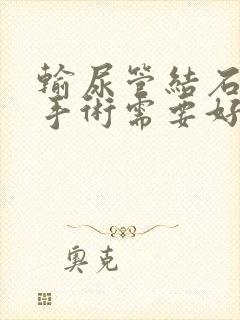 輸尿管結石
手術需要好
奧克